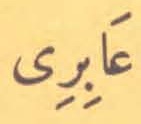 عَابِرِی